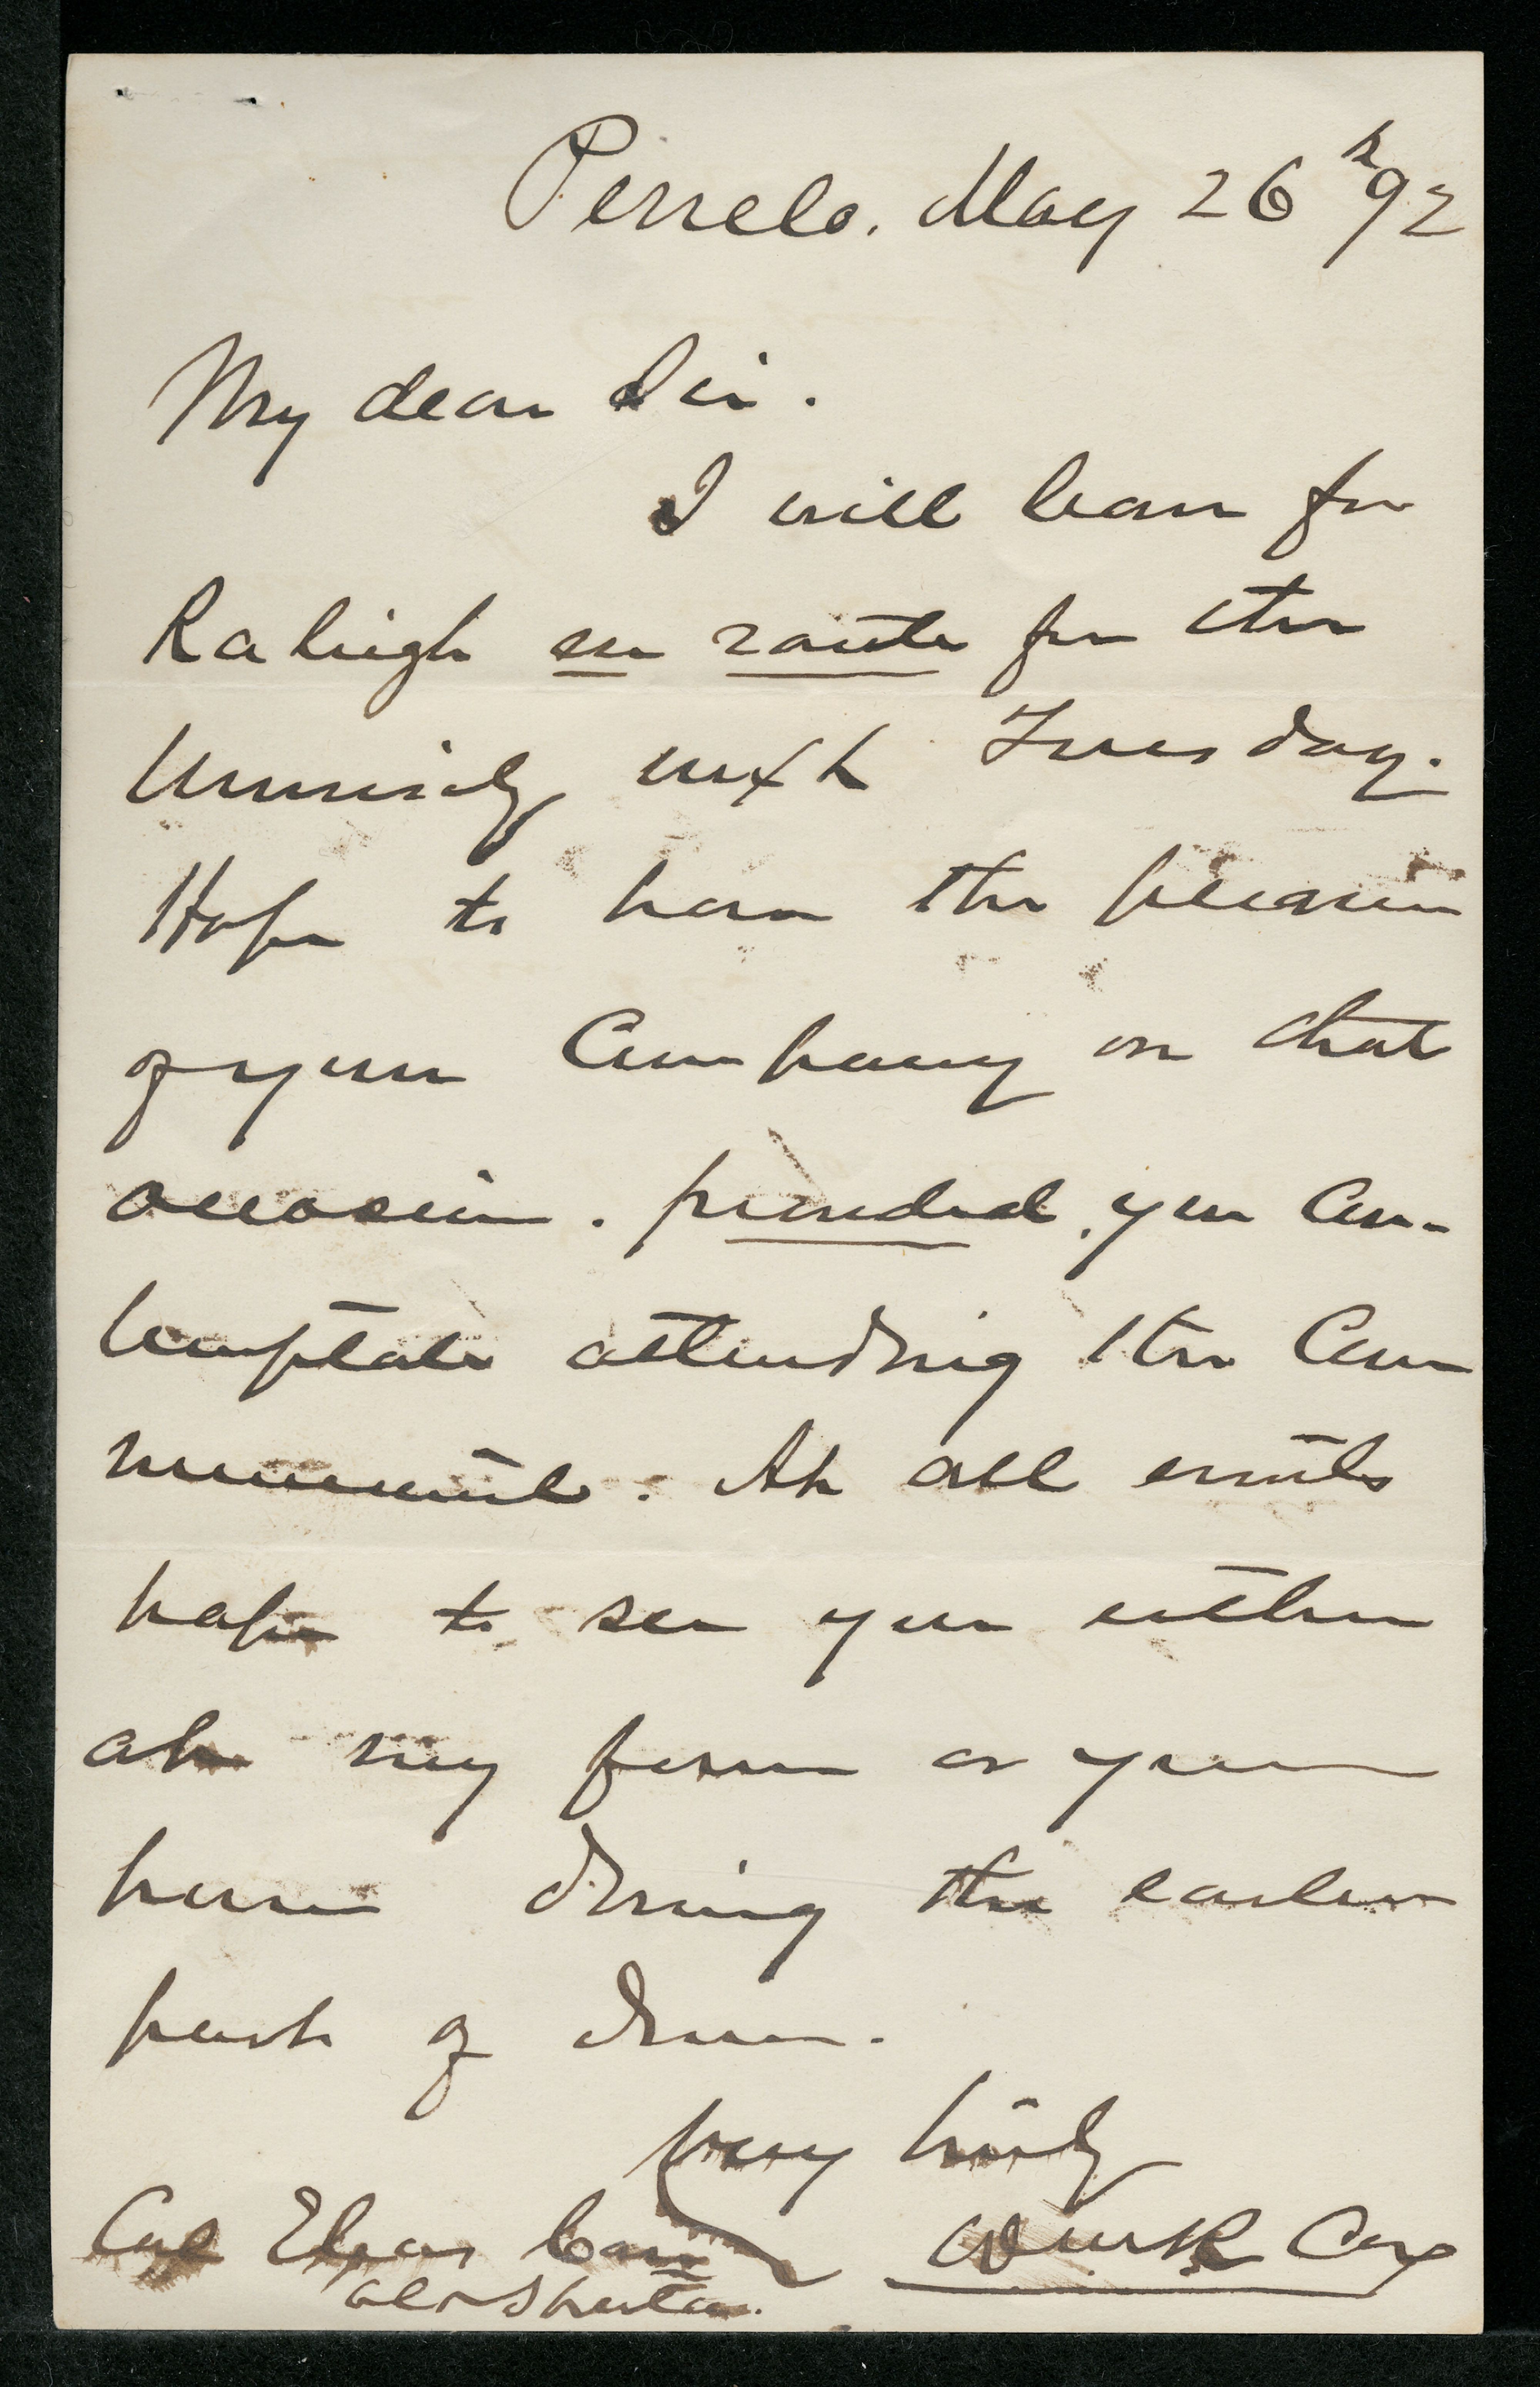 Penelo. May 26th 92
My dear Sir.
I will leave for
Raleigh en route for the
University next Tuesday.
Hope to have the pleasure
of your Company on that
occasion. provided, you con-
template attending the Com
mencement. At all events
hope to see you either
at my farm or your
house during the earlier
part of June.
Very truly
Wm R Cox
Col Elias Carr
Old Sparta.